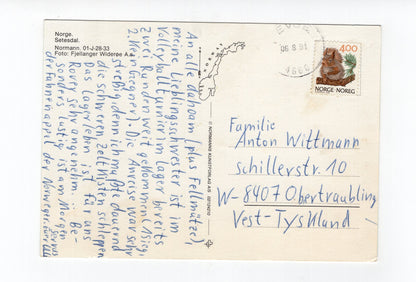 Norge.
Setesdal.
Normann. 01-J-26-33
Foto: Fjellanger Widerøe A.s
An alle dahoam (plus Fellmütze),
meine Lieblingsschwester ist im
Volleyballturnier im Lager bereits
zwei Runden weit gekommen (1 Sieg,
2 Wen Gegner). Die Anreise war sehr
streßi, denn ich mußte dauernd
die schweren Zeltkisten schleppen.
Das Lagerleben ist für uns
Rover sehr angenehm. Be-
sonders lustig ist am Morgen
der Fahnenappell der Norweger.
NORGE
© NORMANNS KUNSTFORLAG AS
EVJE
4660
400
NORGE NOREG
Familie
Anton Wittmann
Schillerstr. 10
W-8407 Obertraubling
Vest-Tyskland